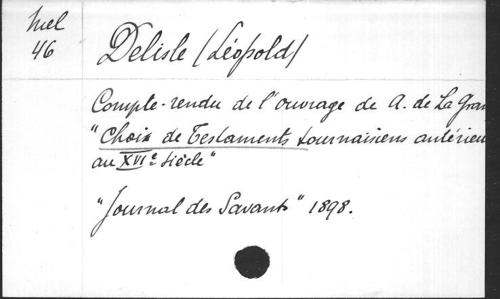 Mel
46
Delisle (Léopold)
Compte-rendu de l'ouvrage de A. de La Gran
"Choix de Testaments tournaisiens antérieu
au XVIe siècle"
"Journal des Savants" 1898.